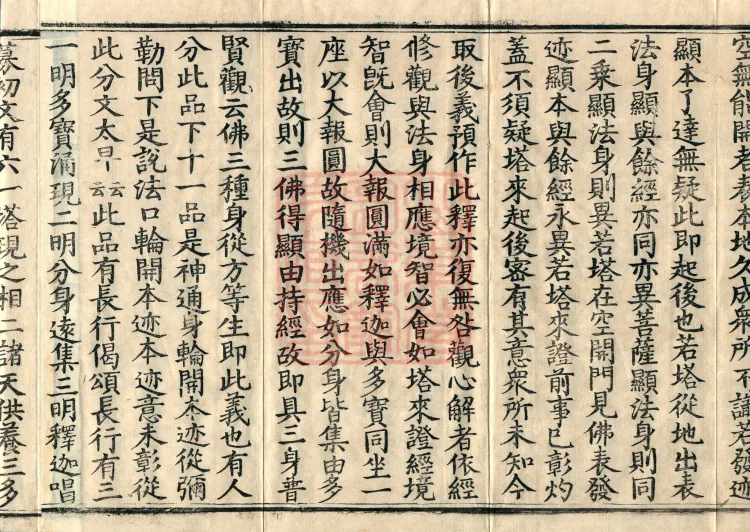 空無能開者養本地久成衆所不識若發迹
顯本了達無疑此即起後也若塔從地出表
法身顯與餘經亦同亦異菩薩顯法身則同
二乘顯法身則異若塔在空開門見佛表發
迹顯本與餘經永異若塔來證前事已彰灼
蓋不須疑塔來起後密有其意衆所未知今
取後義預作此釋亦復無咎觀心解者依經
修觀與法身相應境智必會如塔來證經境
智旣會則大報圓滿如釋迦與多寶同坐一
座以大報圓故隨機出應如分身皆集由多
寶出故則三佛得顯由持經故即具三身普
賢觀云佛三種身從方等生即此義也有人
分此品下十一品是神通身輪開本迹從彌
勒問下是說法口輪開本迹本迹意未彰從
此分文太早云云此品有長行偈頌長行有三
一明多寶涌現二明分身遠集三明釋迦唱
募初文有六一塔現之相二諸天供養三多